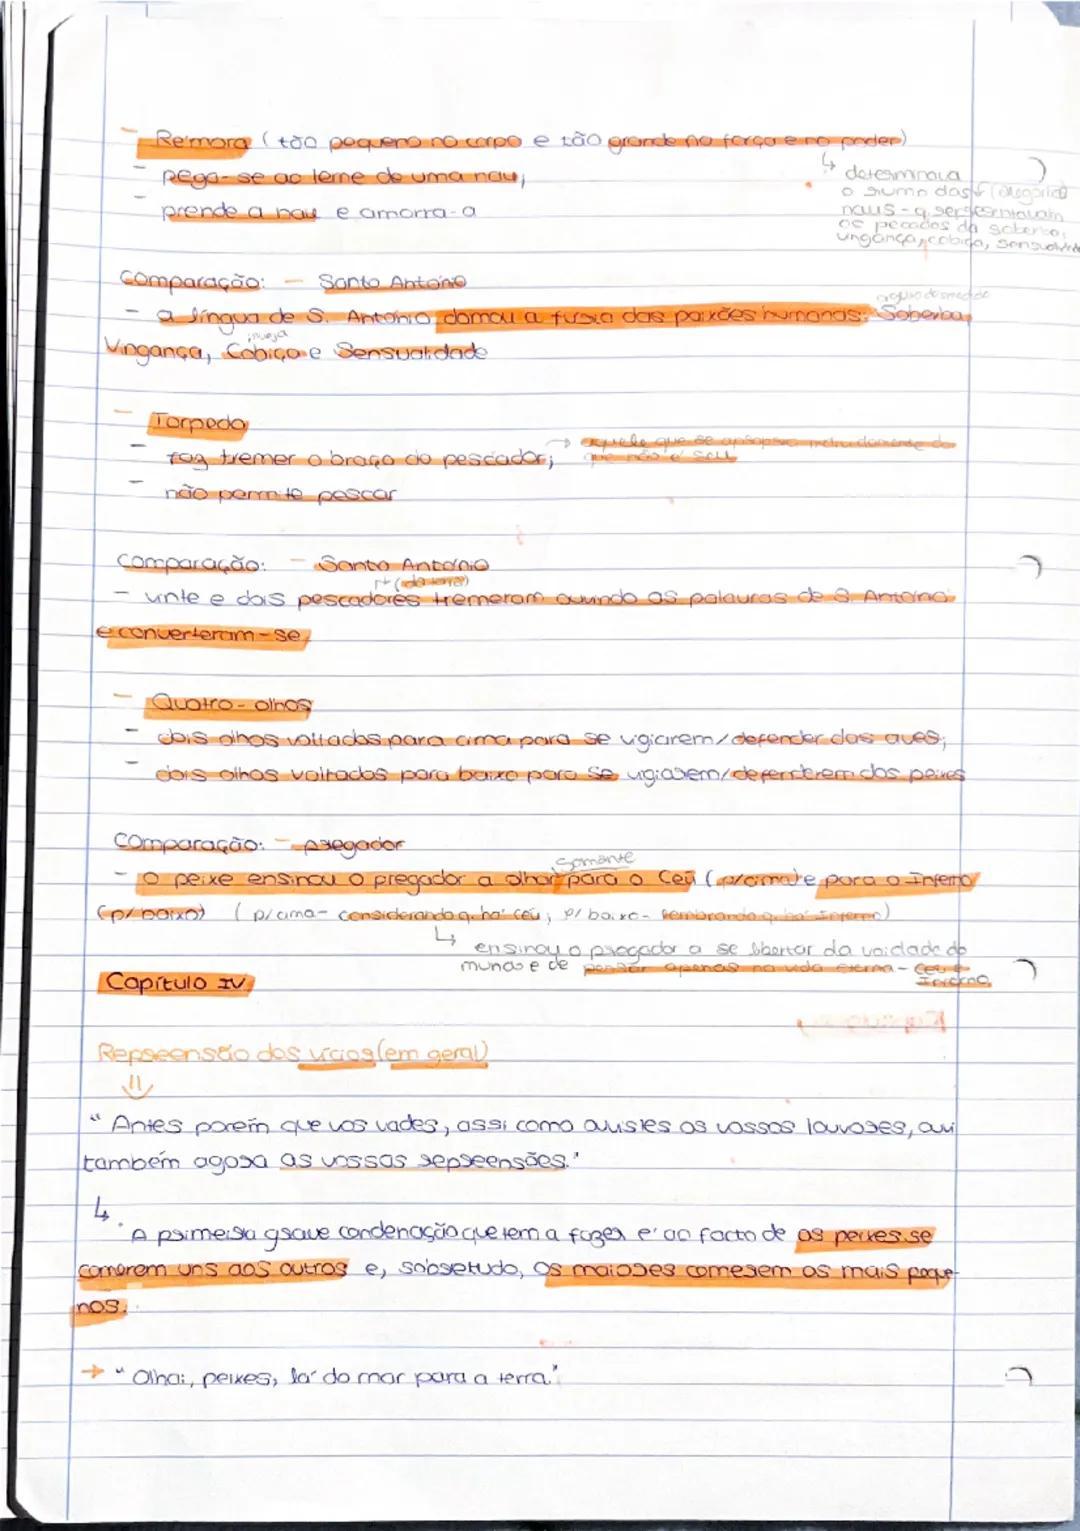 - Rémora (tão pequeno no corpo e tão grande na força e no poder)
↳ determinava
- pega-se ao leme de uma nau;
o rumo das 4 (alegorica)
- prende a nau e amarra-a
naus - q. representavam
os pecados da soberba,
vingança, cobiça, sensualidade
Comparação: - Santo António
orgulho desmedido
- a língua de S. António domou a fúria das paixões humanas: Soberba,
inveja
Vingança, Cobiça e Sensualidade
- Torpedo
→ aquele que se apropria indevidamente do
- faz tremer o braço do pescador; que não é seu
- não permite pescar
Comparação: - Santo António
(da terra)
- vinte e dois pescadores tremeram ouvindo as palavras de S. António
e converteram-se,
- Quatro-olhos
- dois olhos voltados para cima para se vigiarem/defender das aves;
- dois olhos voltados para baixo para se vigiarem/defenderem dos peixes
Comparação: - pregador
somente
- o peixe ensinou o pregador a olhar para o Céu (p/cima) e para o Inferno
(p/baixo) (p/cima- considerando q. há céu, p/baixo- lembrando q. há Inferno)
↳ ensinou o pregador a se libertar da vaidade do
mundo e de pensar apenas na vida eterna - Céu e
Inferno
Capítulo IV
Repreensão dos vícios (em geral)
"Antes porém que vos vades, assi como ouvistes os vossos louvores, ouvi
também agora as vossas repreensões."
↳
A primeira grave condenação que tem a fazer é ao facto de os peixes se
comerem uns aos outros e, sobretudo, os maiores comerem os mais peque-
nos.
→ "Olhai, peixes, lá do mar para a terra."